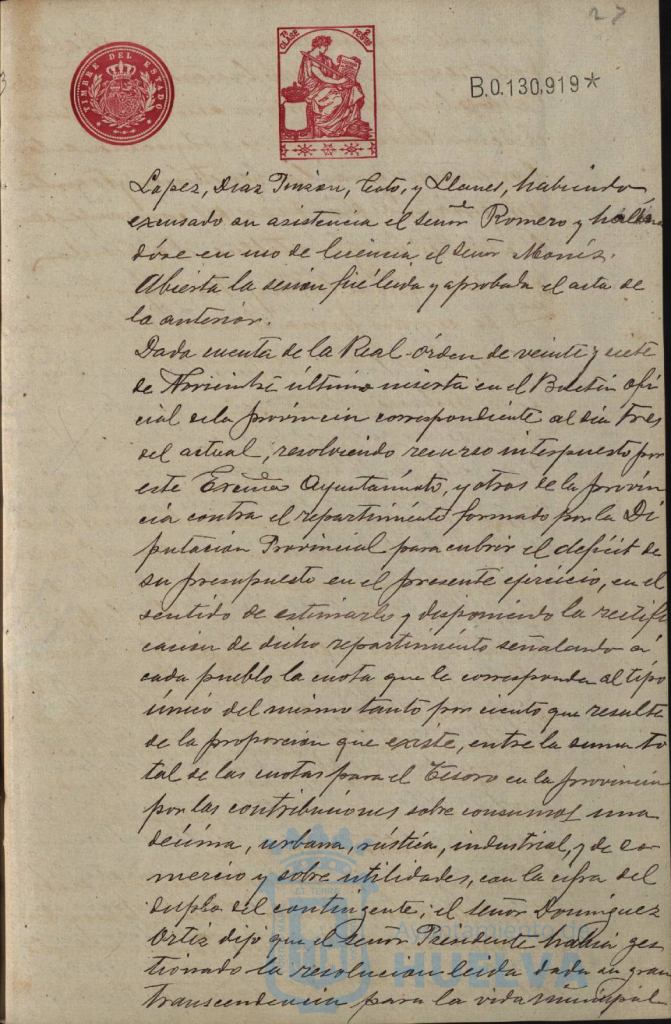 27
TIMBRE DEL ESTADO
7ª CLASE 2 PESETAS
B.0.130.919*
Lopez, Diaz Pinzón, Coto, y Llanes, habiendo
excusado su asistencia el señor Romero y hallán
dose en uso de licencia, el señor Monís.
Abierta la sesión fué leida y aprobada el acta de
la anterior.
Dada cuenta de la Real órden de veinte y siete
de Noviembre último inserta en el Boletin ofi
cial de la provincia correspondiente al dia tres
del actual, resolviendo recurso interpuesto por
este Excmo Ayuntamiento, y otros de la provin
cia contra el repartimiento formado por la Di
putación Provincial para cubrir el deficit de
su presupuesto en el presente ejercicio, en el
sentido de estimarlo y disponiendo la rectifi
cacion de dicho repartimiento señalando á
cada pueblo la cuota que le corresponda al tipo
único del mismo tanto por ciento que resulte
de la proporcion que existe, entre la suma to
tal de las cuotas para el Tesoro en la provincia
por las contribuciones sobre consumos una
décima, urbana, rústica, industrial, y de co
mercio y sobre utilidades, con la cifra del
duplo del contingente; el señor Domínguez
Ortiz dijo que el señor Presidente habia ges
tionado la resolucion leida dada su gran
transcendencia para la vida municipal
Ayuntamiento de
HUELVA